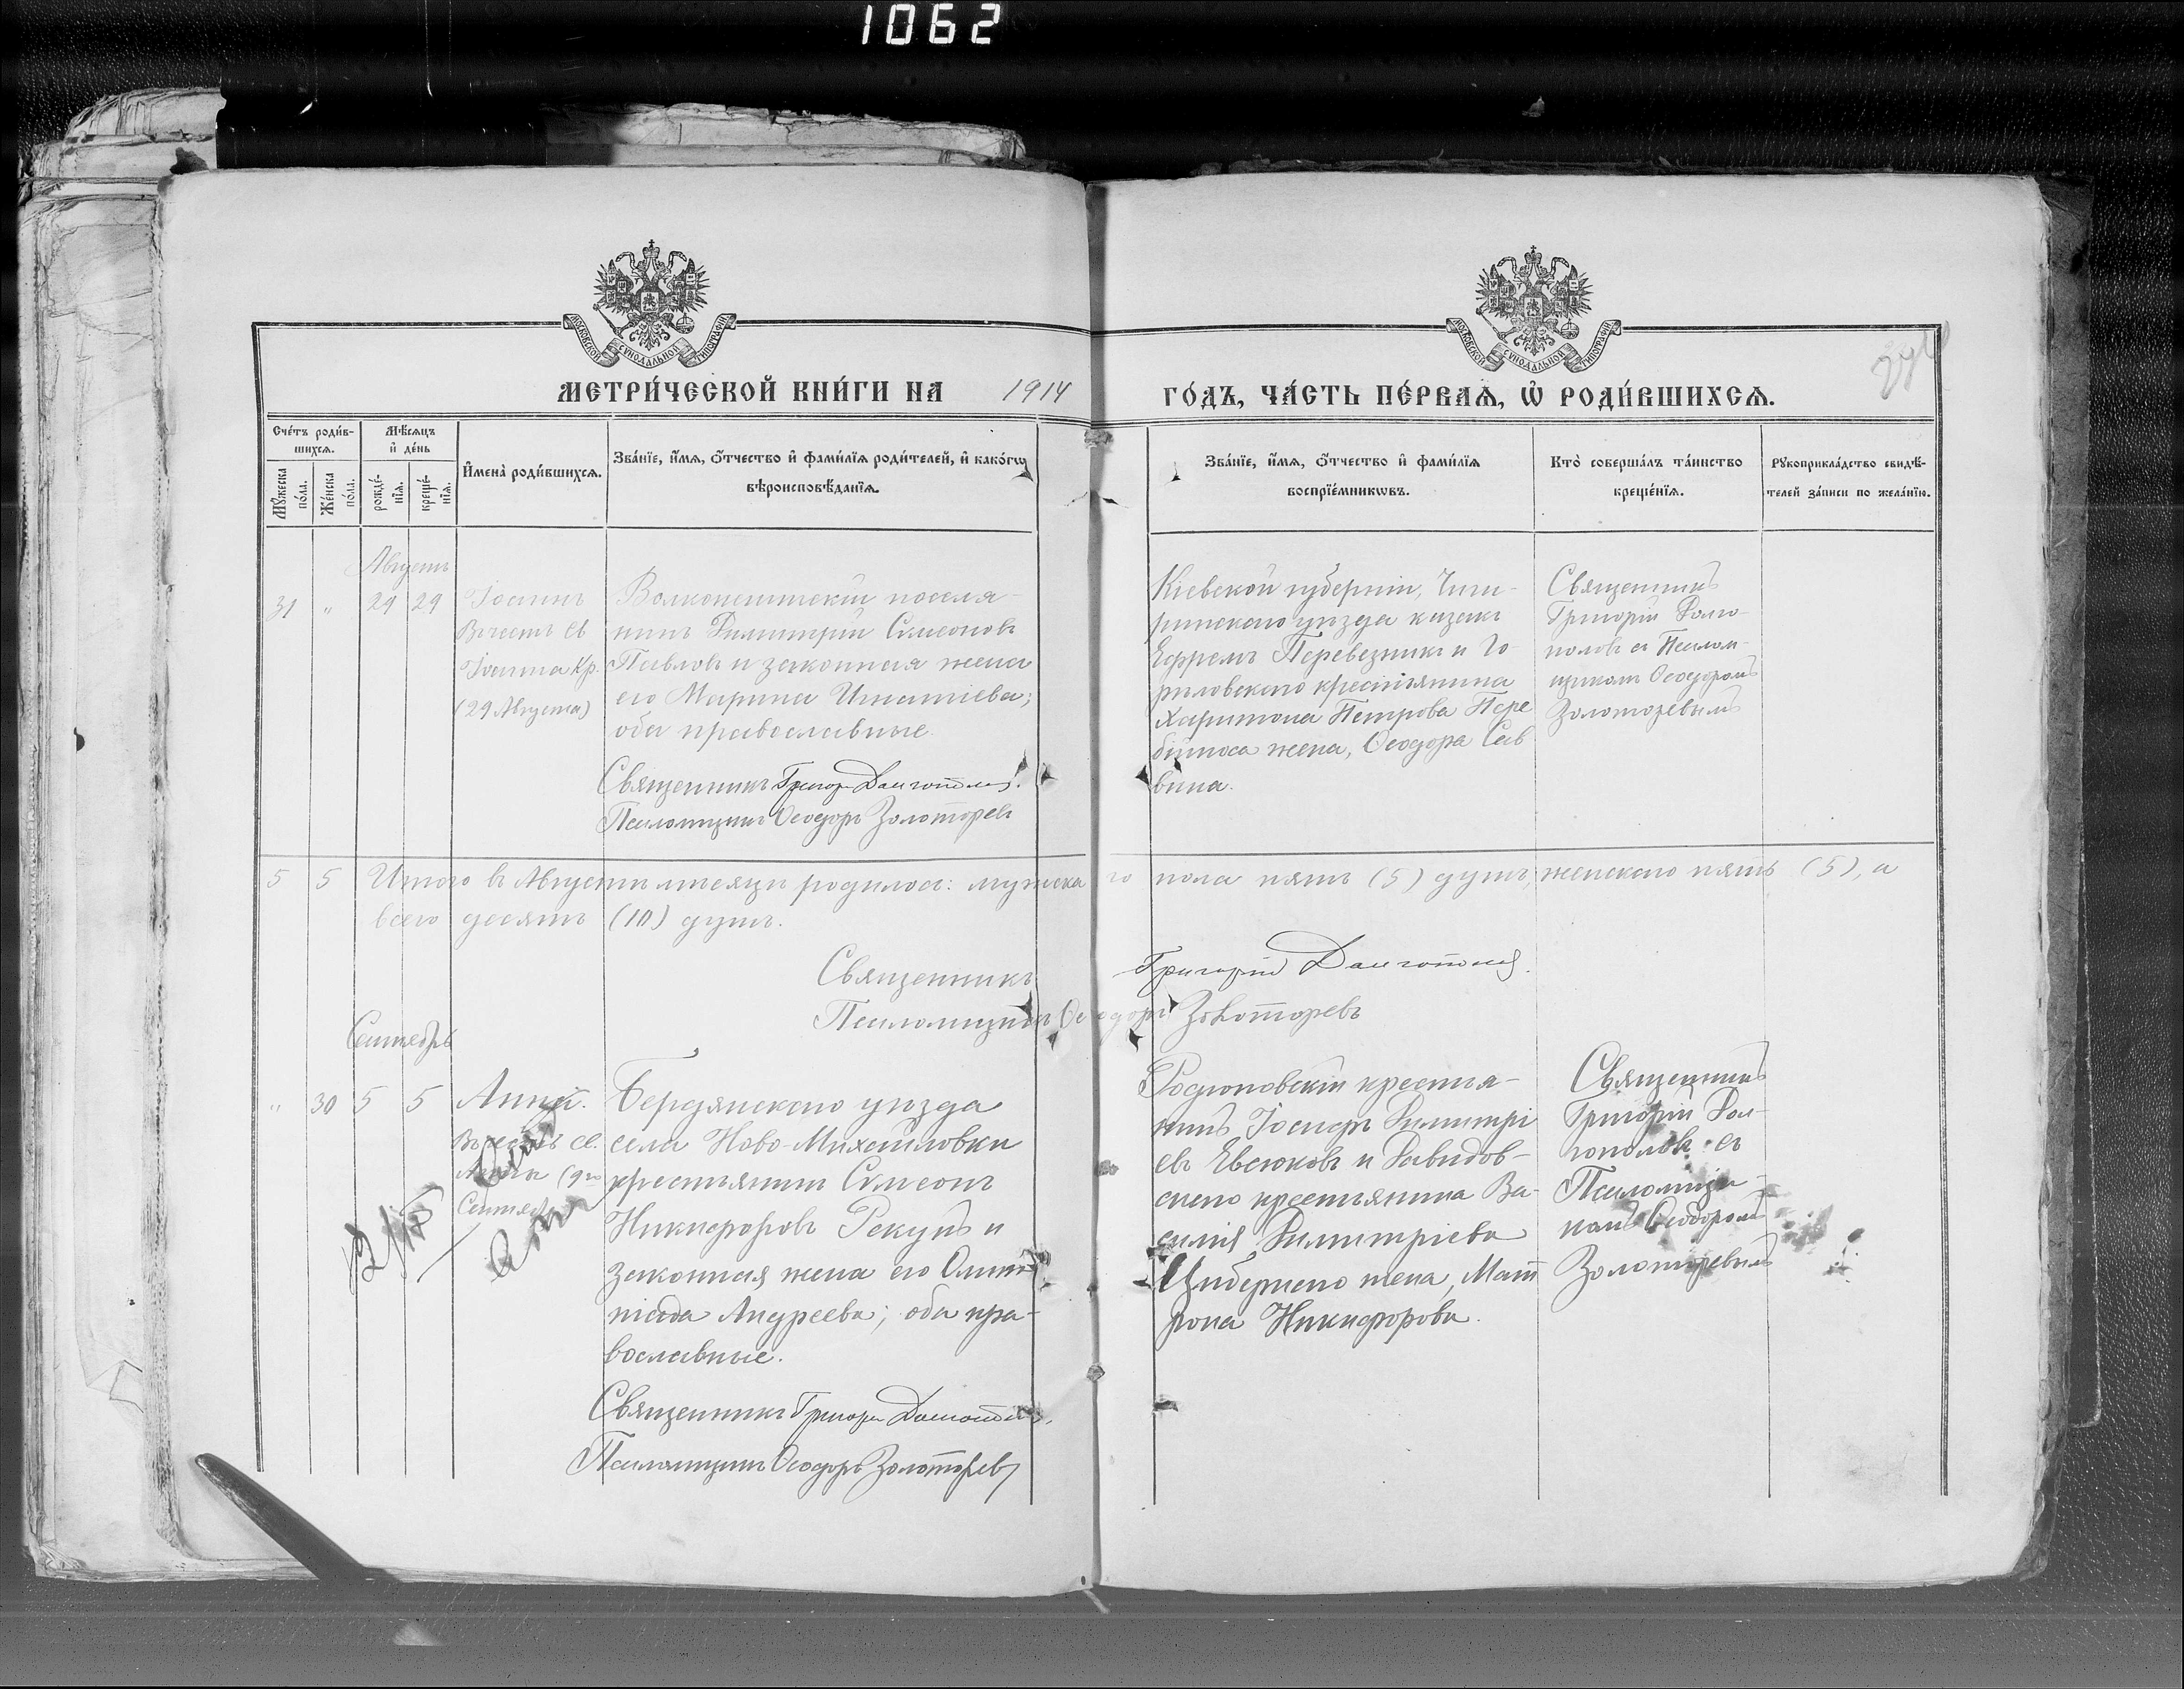 1062
МОСКОВСКОЙ СѴНОДАЛЬНОЙ ТИПОГРАФІИ
МОСКОВСКОЙ СѴНОДАЛЬНОЙ ТИПОГРАФІИ
МЕТРИ́ЧЕСКОЙ КНИ́ГИ НА 1914 ГО́ДЪ, ЧА́СТЬ ПЕ́РВАѦ, Ѡ҆ РОДИ́ВШИХСѦ.
Сче́тъ роди́в-
шихсѧ.
Мꙋ́жеска по́ла.
Же́нска по́ла.
Мѣ́сѧцъ
и҆ де́нь
рожде́-
нїѧ.
креще́-
нїѧ.
И҆мена̀ роди́вшихсѧ.
Зва́нїе, и҆́мѧ, ѻ҆́тчество и҆ фами́лїѧ роди́телей, и҆ како́гѡ
вѣроисповѣ́данїѧ.
Зва́нїе, и҆́мѧ, ѻ҆́тчество и҆ фами́лїѧ
воспрїе́мникѡвъ.
Кто̀ соверша́лъ та́инство
креще́нїѧ.
Рꙋкоприкла́дство свидѣ́-
телей за́писи по жела́нїю.
Августъ
31 " 29 29
Іоаннъ
Въ честь св
Іоанна Кр.
(29 Августа)
поселя-
нинъ Димитрій Симеоновъ
Павловъ и законная жена
его Марина Игнатіева;
оба православные.
Священникъ Григорій
Псаломщикъ Ѳеодоръ Золоторевъ
Кіевской губерніи, Чиги-
ринскаго уѣзда казакъ
Ефремъ Перевезникъ и Го-
риловскаго крестьянина
Харитона Петрова Пере
бійноса жена, Ѳеодора Сав
вина.
Священникъ
Григорій Долго-
половъ съ Псалом-
щикомъ Ѳеодоромъ
Золоторевымъ
5 5 Итого въ Августѣ мѣсяцѣ родилось: мужскаго пола пять (5) душъ, женскаго пять (5), а
всего десять (10) душъ.
Священникъ Григорій
Псаломщикъ Ѳеодоръ Золоторевъ
Сентябрь
" 30 5 5
Анна.
Въ честь св.
Анны (9го
Сентября)
Бердянскаго уѣзда
села Ново-Михайловки
крестьянинъ Симеонъ
Никифоровъ Рекунъ и
законная жена его Олим-
піада Андреева; оба пра-
вославные.
Священникъ Григорій
Псаломщикъ Ѳеодоръ Золоторевъ
Родіоновскій крестья-
нинъ Іосифъ Димитрі
евъ Евсюковъ и Давидов-
скаго крестьянина Ва-
силія Димитріева
жена, Мат
рона Никифорова.
Священникъ
Григорій Дол-
гополовъ съ
Псаломщи-
комъ Ѳеодоромъ
Золоторевымъ